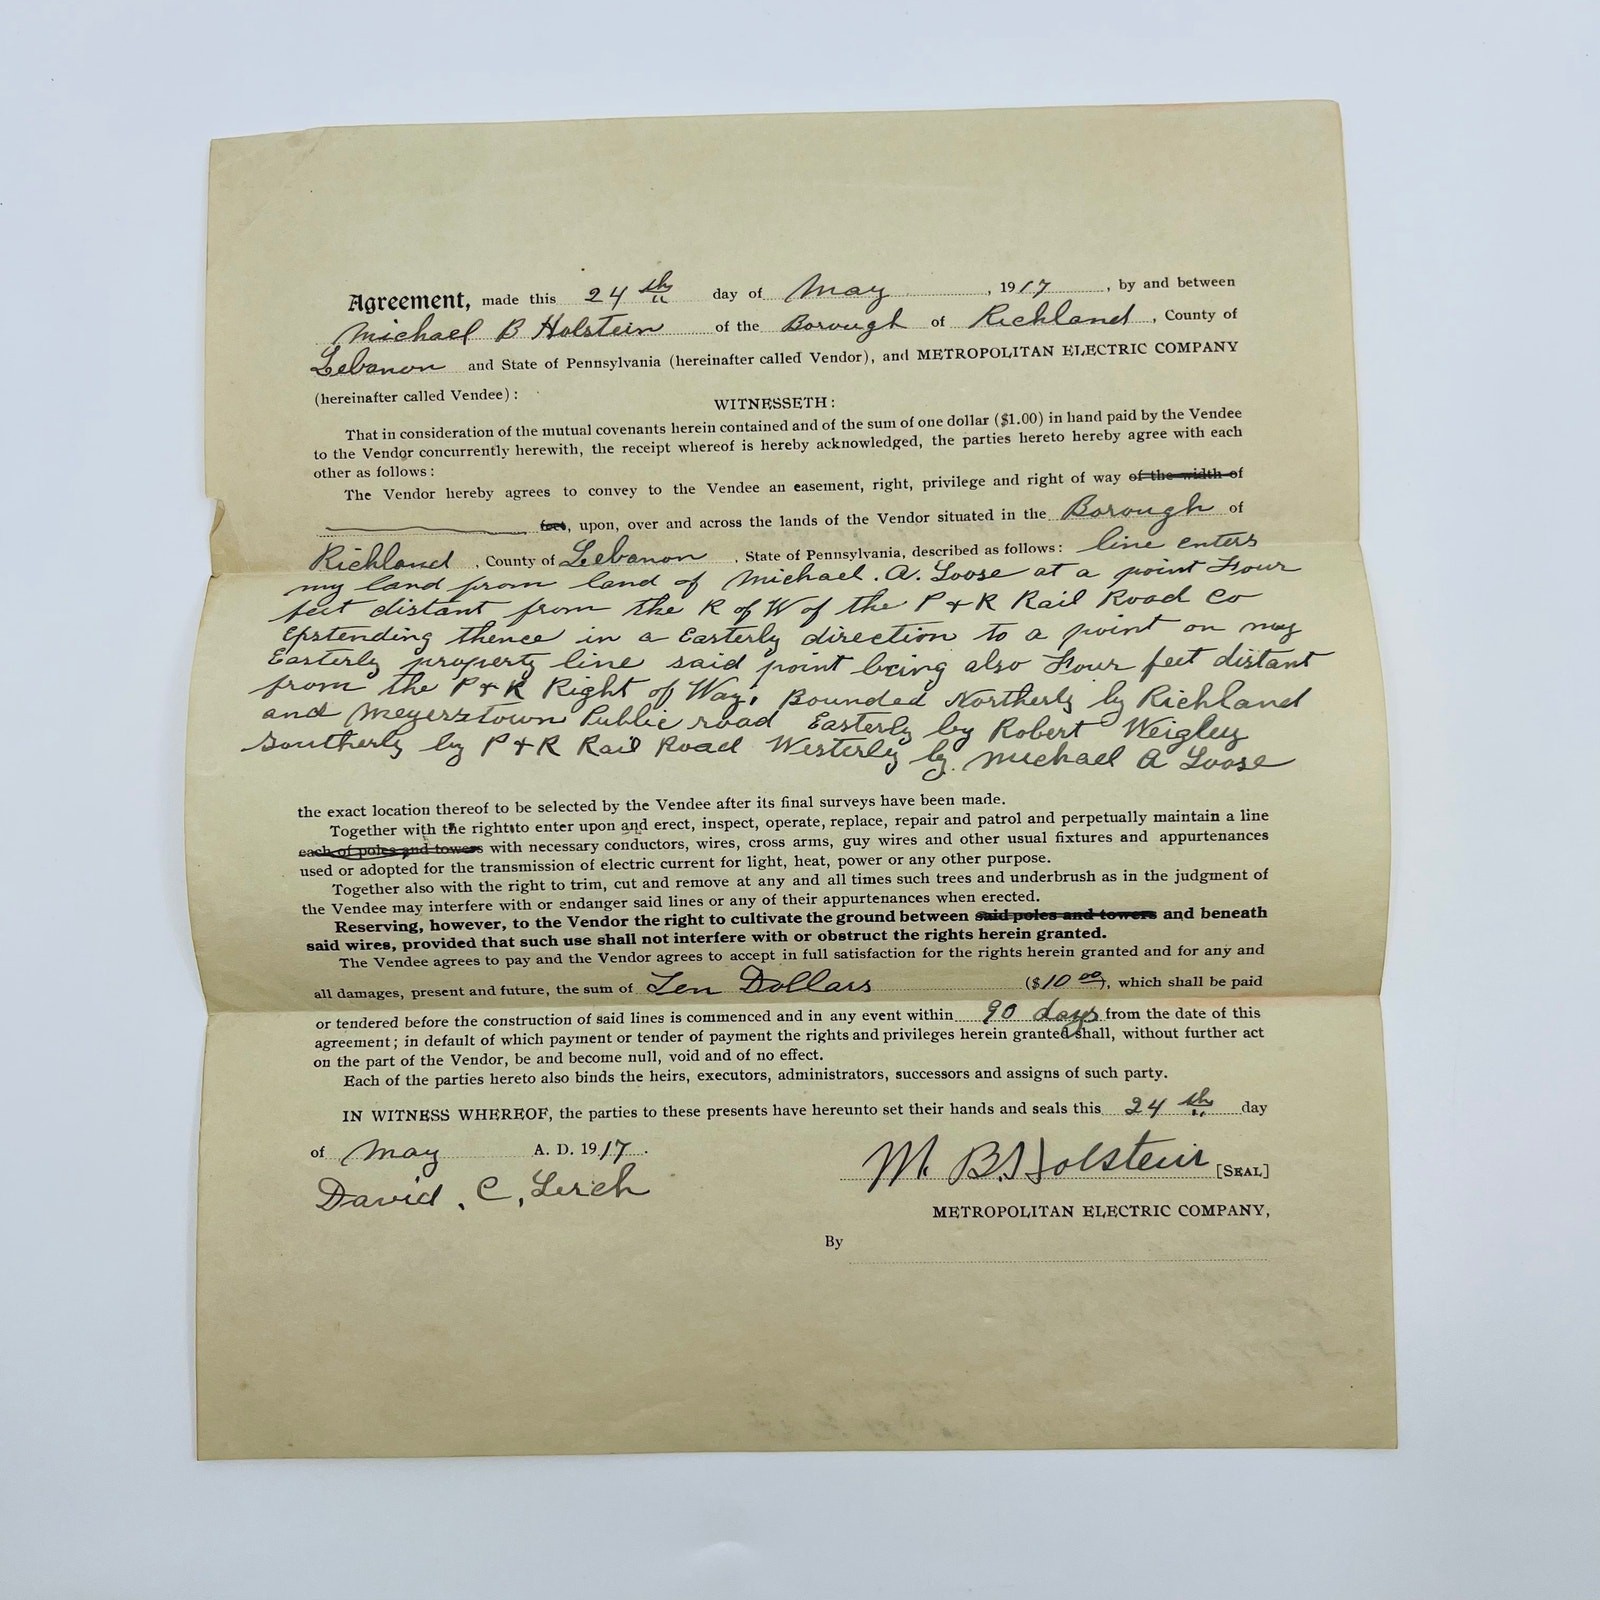 Agreement, made this 24th day of May, 1917, by and between
Michael B Holstein of the Borough of Richland, County of
Lebanon and State of Pennsylvania (hereinafter called Vendor), and METROPOLITAN ELECTRIC COMPANY
(hereinafter called Vendee):
WITNESSETH:
That in consideration of the mutual covenants herein contained and of the sum of one dollar ($1.00) in hand paid by the Vendee
to the Vendor concurrently herewith, the receipt whereof is hereby acknowledged, the parties hereto hereby agree with each
other as follows:
The Vendor hereby agrees to convey to the Vendee an easement, right, privilege and right of way of the width of
feet, upon, over and across the lands of the Vendor situated in the Borough of
Richland, County of Lebanon, State of Pennsylvania, described as follows: line enters
my land from land of Michael. A. Loose at a point Four
feet distant from the R of W of the P & R Rail Road Co
Extending thence in a Easterly direction to a point on my
Easterly property line said point being also Four feet distant
from the P & R Right of Way, Bounded Northerly by Richland
and Meyerstown Public road Easterly by Robert Weigley
Southerly by P & R Rail Road Westerly by Michael A Loose
the exact location thereof to be selected by the Vendee after its final surveys have been made.
Together with the right to enter upon and erect, inspect, operate, replace, repair and patrol and perpetually maintain a line
each of poles and towers with necessary conductors, wires, cross arms, guy wires and other usual fixtures and appurtenances
used or adopted for the transmission of electric current for light, heat, power or any other purpose.
Together also with the right to trim, cut and remove at any and all times such trees and underbrush as in the judgment of
the Vendee may interfere with or endanger said lines or any of their appurtenances when erected.
Reserving, however, to the Vendor the right to cultivate the ground between said poles and towers and beneath
said wires, provided that such use shall not interfere with or obstruct the rights herein granted.
The Vendee agrees to pay and the Vendor agrees to accept in full satisfaction for the rights herein granted and for any and
all damages, present and future, the sum of Ten Dollars ($10 00), which shall be paid
or tendered before the construction of said lines is commenced and in any event within 90 days from the date of this
agreement; in default of which payment or tender of payment the rights and privileges herein granted shall, without further act
on the part of the Vendor, be and become null, void and of no effect.
Each of the parties hereto also binds the heirs, executors, administrators, successors and assigns of such party.
IN WITNESS WHEREOF, the parties to these presents have hereunto set their hands and seals this 24th day
of May A. D. 1917.
M. B. Holstein [SEAL]
David. C, Lerch
METROPOLITAN ELECTRIC COMPANY,
By